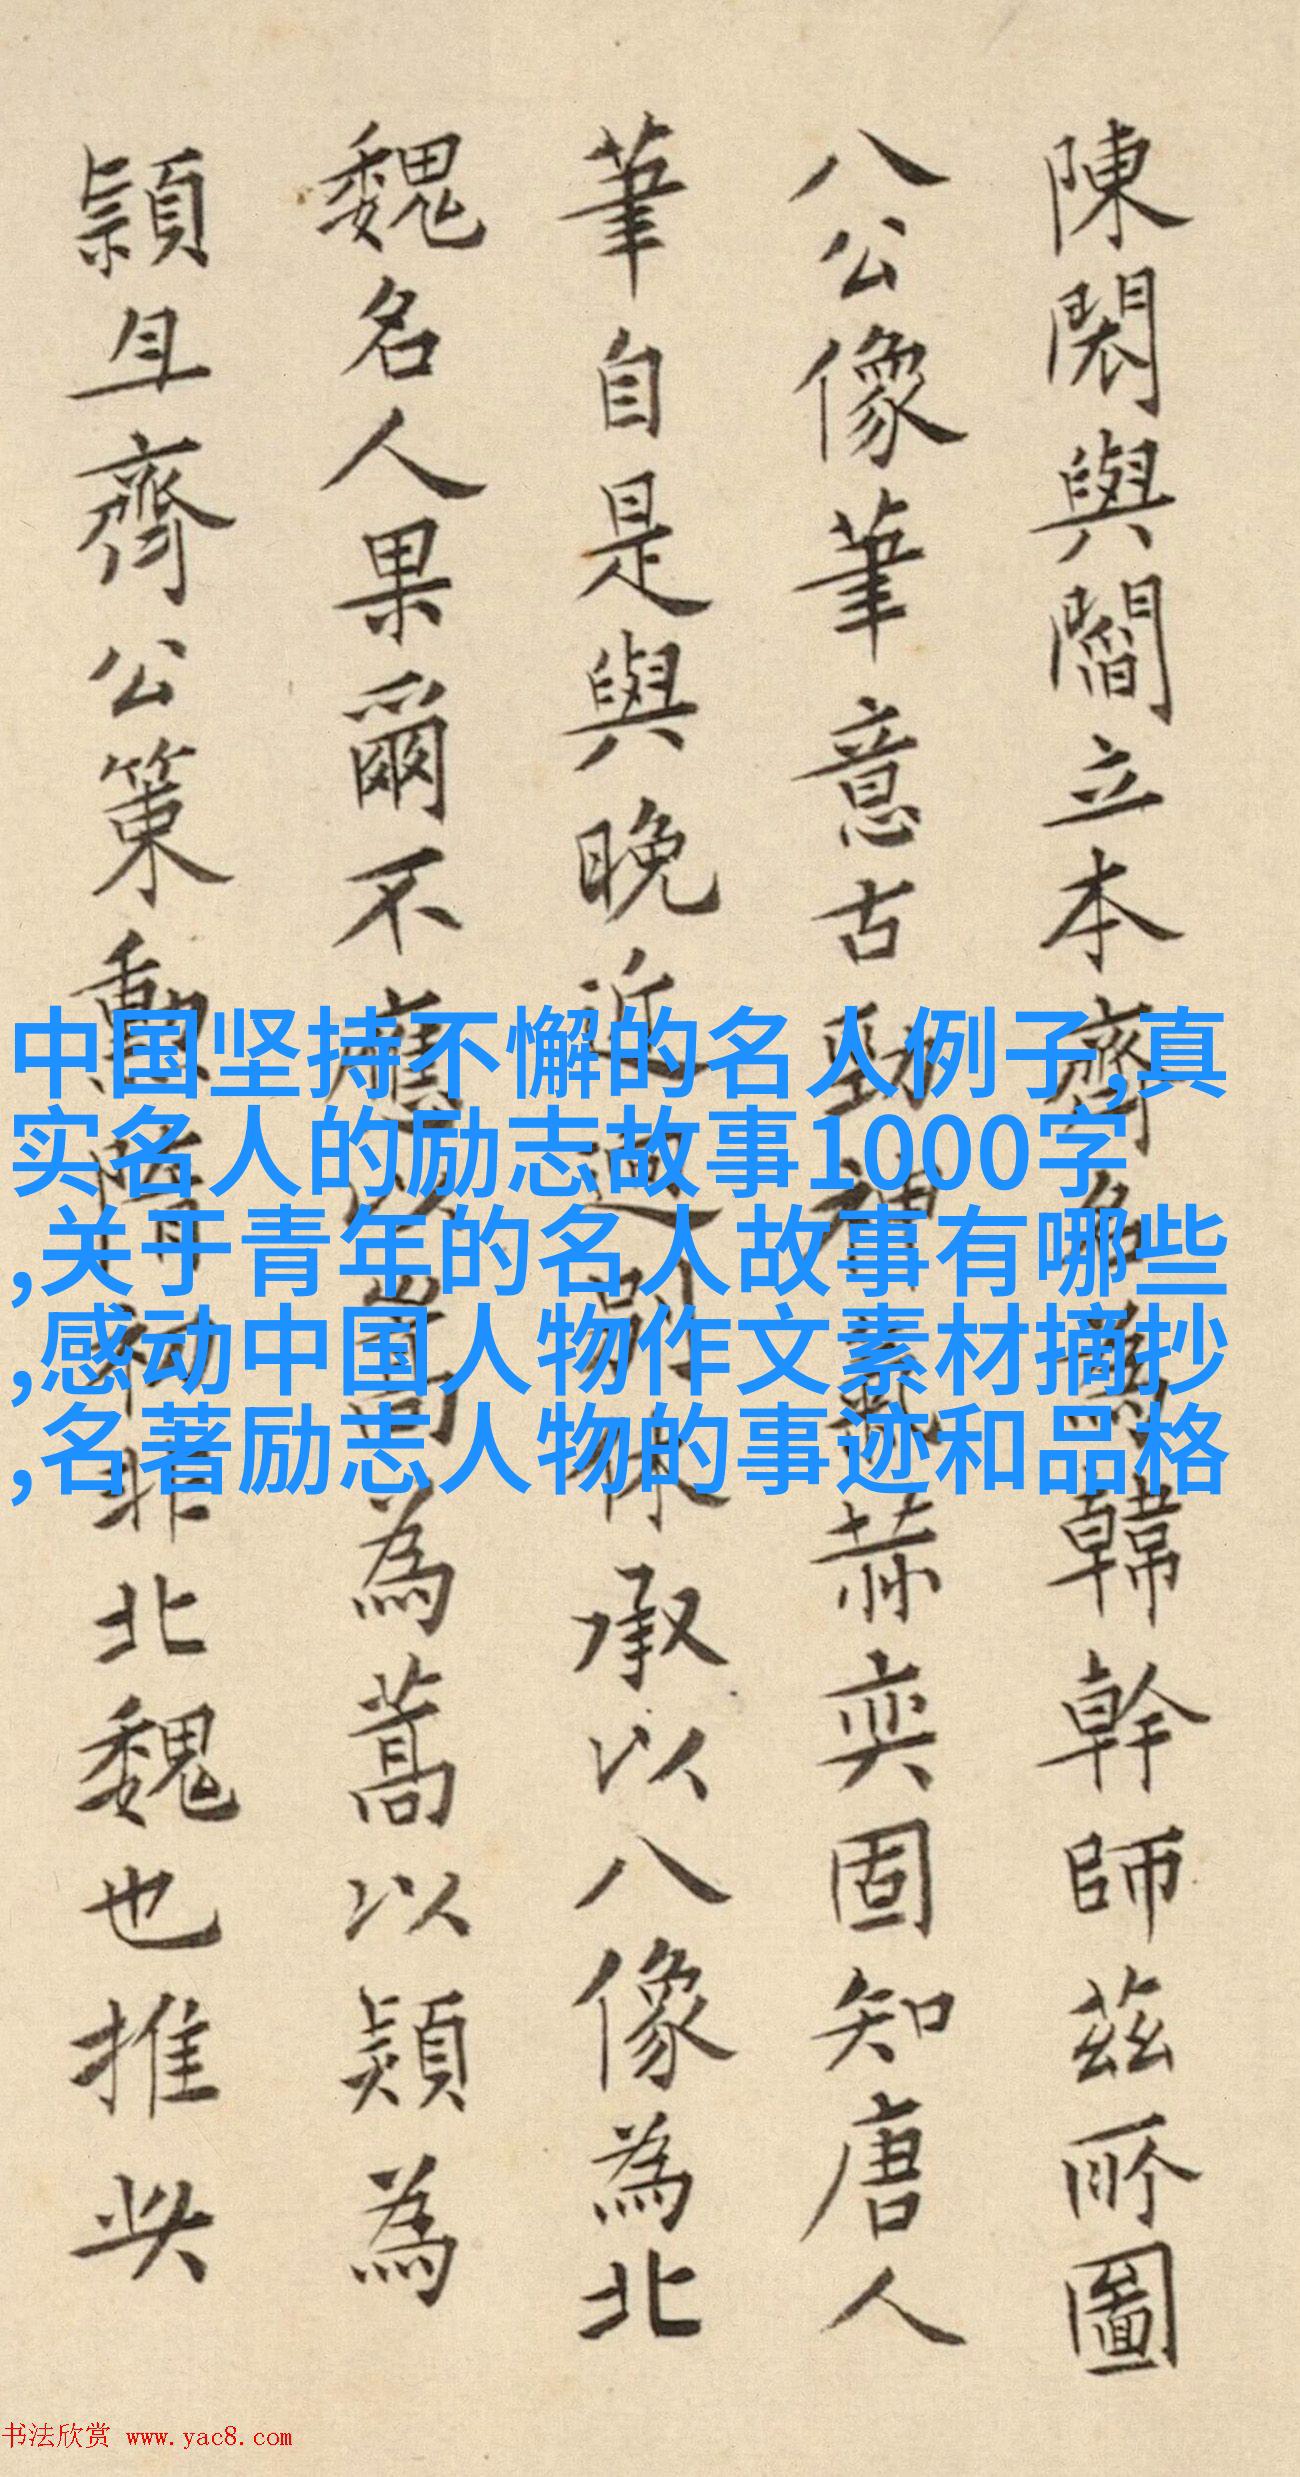 陳閎與閻立本齊名為韓幹師茲所圖
八公像筆意古勁神氣赫奕固知唐人
筆自是與晚近迥別休承以八像為北
魏名人果爾不應以嵩為蒿以熲為
頴且齊公策勳隋初非北魏也推
中国坚持不懈的名人例子,真
实名人的励志故事1000字
,关于青年的名人故事有哪些
,感动中国人物作文素材摘抄
,名著励志人物的事迹和品格
书法欣赏 www.yac8.com